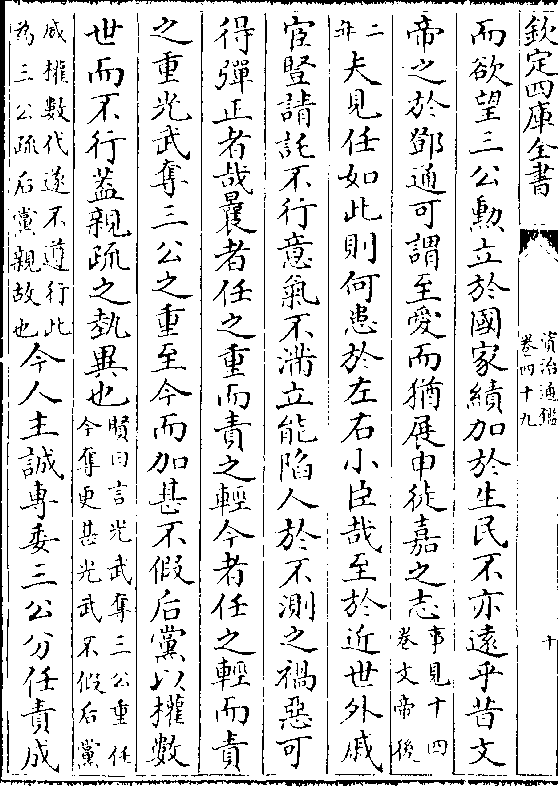 欽定四庫全書
資治通鑑
卷四十九
十
而欲望三公勲立於國家績加於生民不亦遠乎昔文
帝之於鄧通可謂至愛而猶展申徒嘉之志事見十四
卷文帝後
二年夫見任如此則何患於左右小臣哉至於近世外戚
宦豎請託不行意氣不滿立能陷人於不測之禍惡可
得彈正者哉曩者任之重而責之輕今者任之輕而責
之重光武奪三公之重至今而加甚不假后黨以權數
世而不行蓋親疏之埶異也賢曰言光武奪三公重任
今奪更甚光武不假后黨
威權數代遂不遵行此
為三公疏后黨親故也今人主誠専委三公分任責成